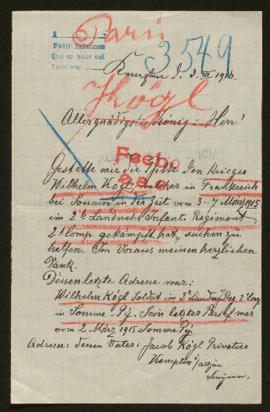 Paris
Pedir Informes
Que se haga así
3549
Kempten d. 3. VI 1916.
Kögl
Allergnädigster König: Herr!
Fecho
Gestatte mir die Bitte den Krieger
Wilhelm Kögl, welcher in Frankreich
bei Souain in Zeit vom 3-7 März 1915
in 2t Landwehr Infant. Regiment
2t Komp. gekämpft hat, suchen zu
helfen. Im Voraus meinen herzlichen
Dank.
Dessen letzte Adresse war:
Wilhelm Kögl Soldat in 2t Landw. Reg. 2t Comp
in Somme Py. Sein letzter Brief war
vom 2. März 1915 Somme Py.
Adresse: dessen Vater: Jacob Kögl Privatier
Kempten